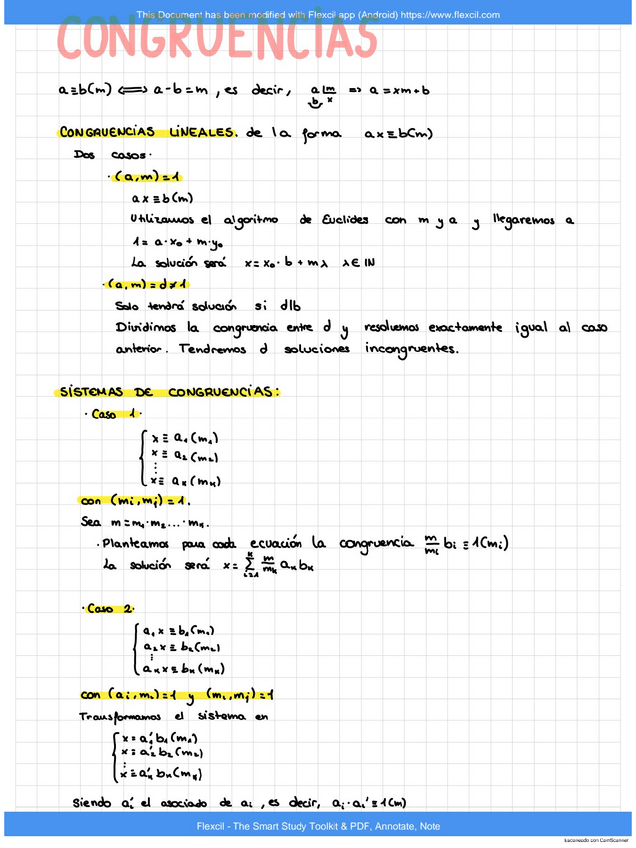 This Document has been modified with Flexcil app (Android) https://www.flexcil.com
CONGRUENCIAS
a≡b(m) ⟺ a-b=m , es decir, a |m b x => a=xm+b
CONGRUENCIAS LINEALES. de la forma ax≡b(m)
Dos casos.
· (a,m)=1
ax≡b(m)
Utilizamos el algoritmo de Euclides con m y a y llegaremos a
1= a·x₀ + m·y₀
La solución será x=x₀·b+mλ λ∈ℕ
· (a,m)=d≠1
Solo tendrá solución si d|b
Dividimos la congruencia entre d y resolvemos exactamente igual al caso
anterior. Tendremos d soluciones incongruentes.
SISTEMAS DE CONGRUENCIAS:
· Caso 1·
x≡ a₁(m₁)
x≡ a₂(m₂)
⋮
x≡ aₖ(mₖ)
con (mi,mj)=1.
Sea m=m₁·m₂...·mₖ.
· Planteamos para cada ecuación la congruencia m/mi bi ≡1(mi)
La solución será x= Σ i=1 k m/mk ak bk
· Caso 2·
a₁x≡b₁(m₁)
a₂x≡b₂(m₂)
⋮
aₖx≡bₖ(mₖ)
con (ai,mi)=1 y (mi,mj)=1
Transformamos el sistema en
x≡a₁'b₁(m₁)
x≡a₂'b₂(m₂)
⋮
x≡aₖ'bₖ(mₖ)
Siendo ai' el asociado de ai , es decir, ai·ai'≡1(m)
Flexcil - The Smart Study Toolkit & PDF, Annotate, Note
Escaneado con CamScanner